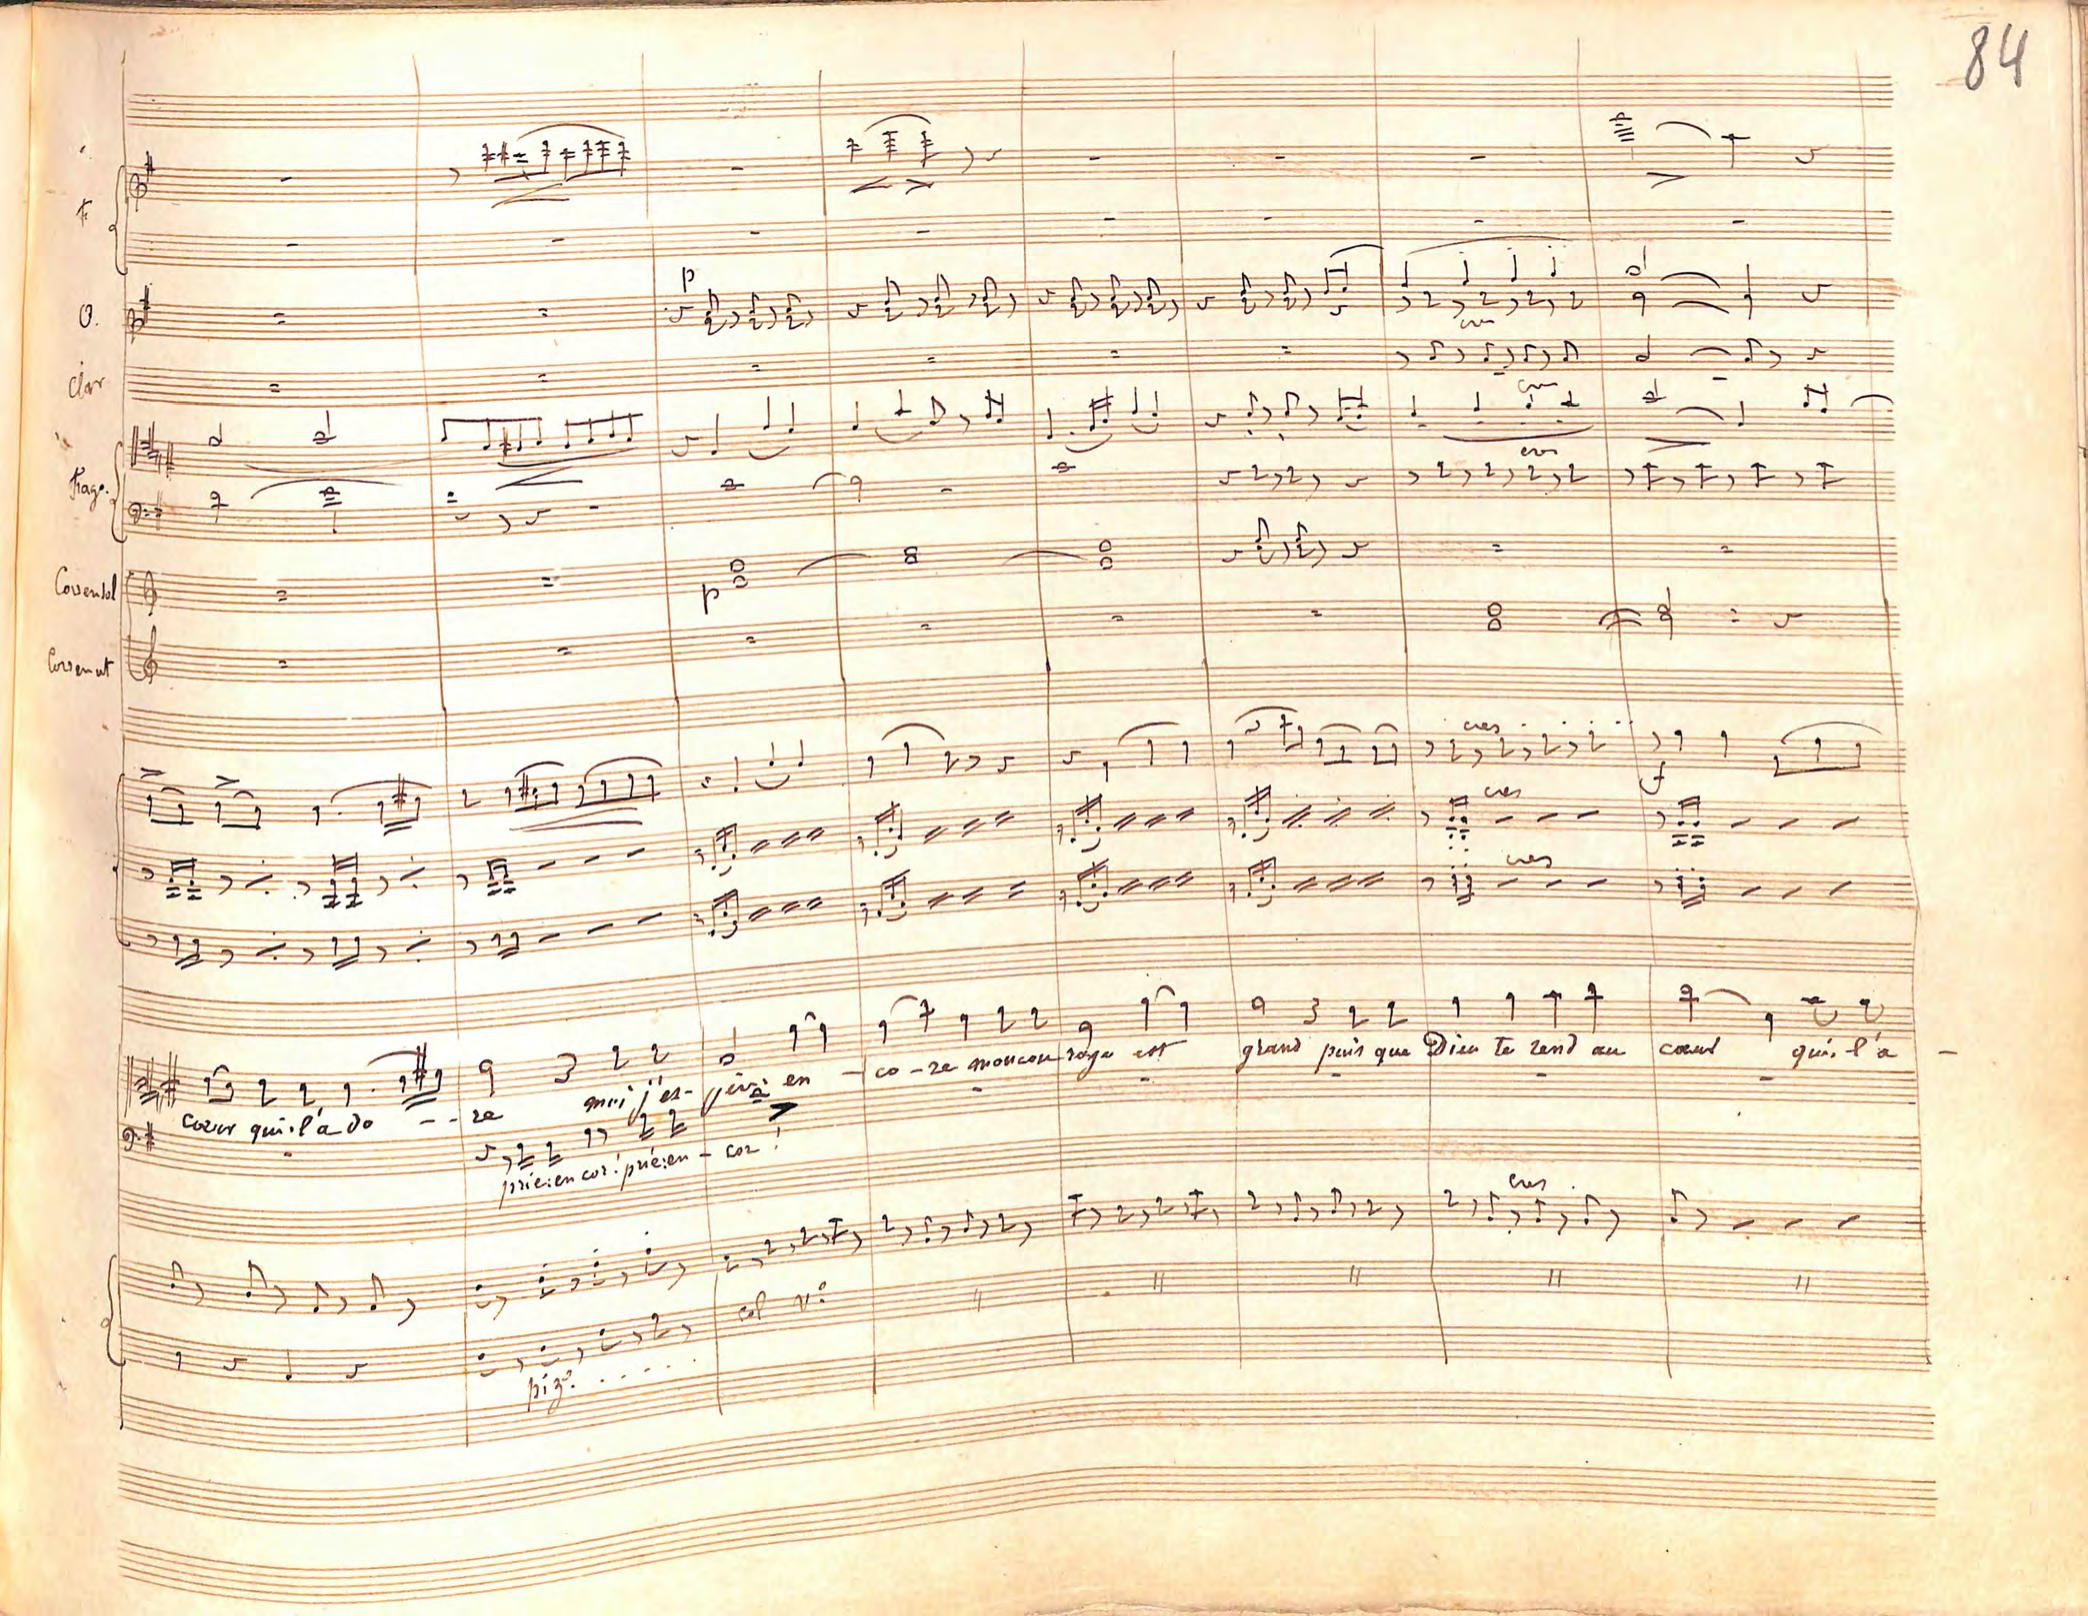 84
F
O.
Clar
p
cres
cres
cres
Fago.
Cor en sol
p
Cor en ut
cres
f
cres
cres
coeur qui l'a do - - re moi j'es- père en - co - re mon courage est grand puis que Dieu te rend au coeur qui l'a -
prie: encor! prie: en - cor!
cres
col v:
piz: